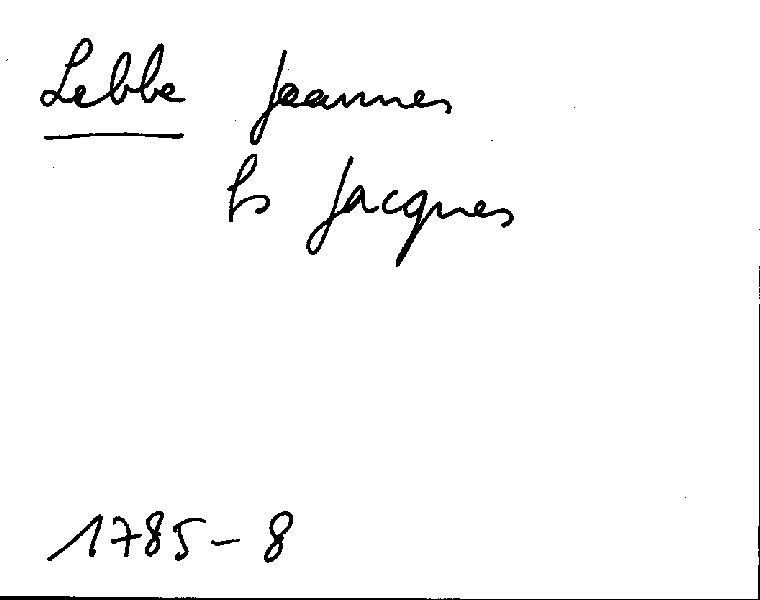 Lebbe Joannes
fs Jacques
1785-8